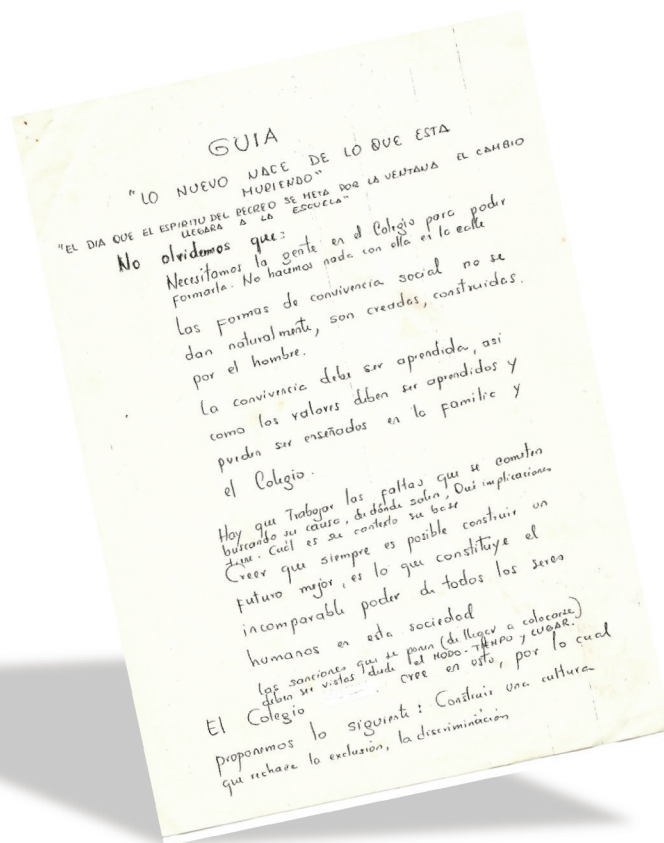 GUIA
"LO NUEVO NACE DE LO QUE ESTA
MURIENDO"
"EL DIA QUE EL ESPIRITU DEL RECREO SE META POR LA VENTANA EL CAMBIO
LLEGARA A LA ESCUELA"
No olvidemos que:
Necesitamos la gente en el Colegio para poder
formarla. No hacemos nada con ella en la calle
Las formas de convivencia social no se
dan naturalmente, son creadas, construidas.
por el hombre.
La convivencia debe ser aprendida, asi
como los valores deben ser aprendidos y
pueden ser enseñados en la familia y
el Colegio.
Hay que Trabajar las faltas que se cometen
buscando su causa, de dónde salen, Qué implicaciones
tiene. Cuál es su contexto su base
Creer que siempre es posible construir un
futuro mejor, es lo que constituye el
incomparable poder de todos los seres
humanos en esta sociedad
Las sanciones que se ponen (de llegar a colocarse)
deben ser vistas desde el MODO-TIEMPO y LUGAR.
El Colegio cree en esto, por lo cual
proponemos lo siguiente: Construir una cultura
que rechace la exclusión, la discriminación